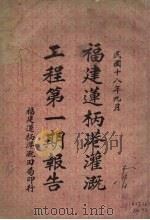 民國十八年九月
福建蓮柄港灌溉
工程第一期報告
福建蓮柄港溉田局印行